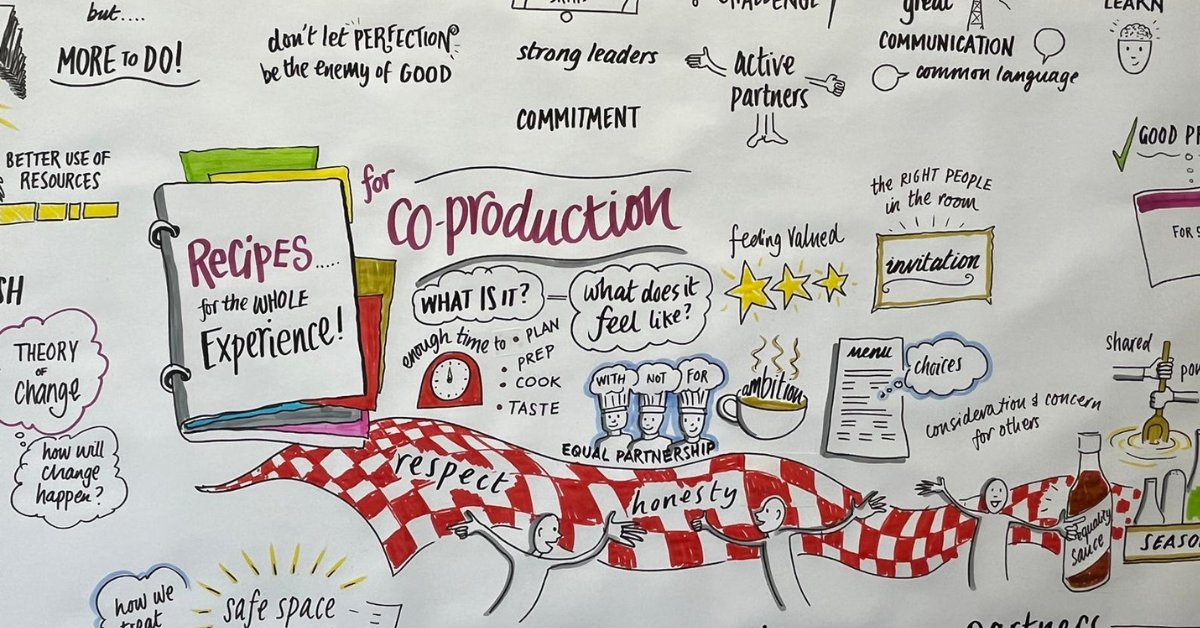 but....
MORE TO DO!
don't let PERFECTION
be the enemy of GOOD
strong leaders
COMMITMENT
CHALLENGE!
active
partners
great
COMMUNICATION
common language
LEARN
BETTER USE OF
RESOURCES
RECIPES.....
for the WHOLE
Experience!
for
co-production
WHAT IS IT?
what does it
feel like?
enough time to
• PLAN
PREP
• COOK
• TASTE
WITH
NOT
FOR
EQUAL PARTNERSHIP
feeling valued
ambition
the RIGHT PEOPLE
in the room
invitation
menu
choices
consideration & concern
for others
GOOD
FOR
shared
equality
sauce
THEORY
OF
Change
how will
change
happen?
respect
honesty
how we
treat
safe space
partners